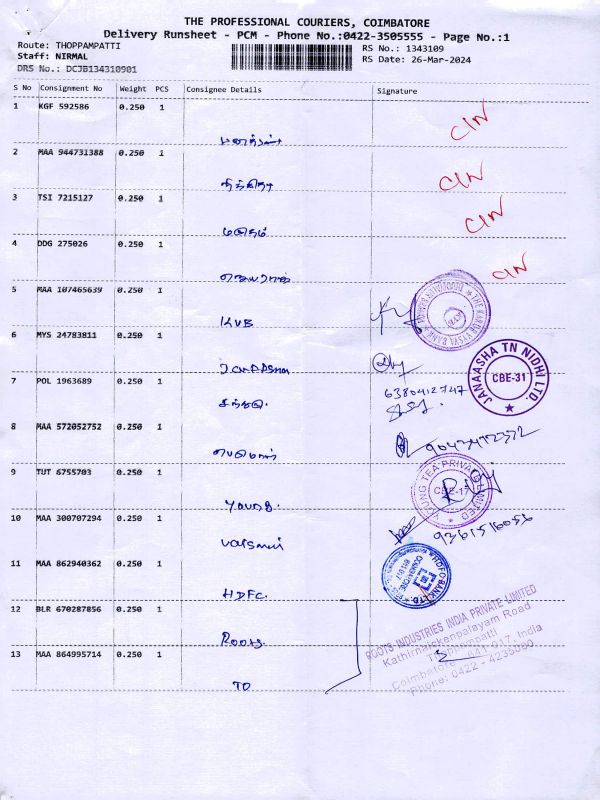 THE PROFESSIONAL COURIERS, COIMBATORE
Delivery Runsheet - PCM - Phone No.:0422-3505555 - Page No.:1
Route: THOPPAMPATTI
Staff: NIRMAL
DRS No.: DCJB134310901
RS No.: 1343109
RS Date: 26-Mar-2024
S No Consignment No Weight PCS Consignee Details Signature
1 KGF 592586 0.250 1
CIN
2 MAA 944731388 0.250 1
CIN
3 TSI 7215127 0.250 1
CIN
4 DDG 275026 0.250 1
CIN
5 MAA 107465639 0.250 1
KVB
THE KARUR VYSYA BANK
6 MYS 24783811 0.250 1
JANAASHA TN NIDHI LTD.
CBE-31
7 POL 1963689 0.250 1
6380412747
8 MAA 572052752 0.250 1
9 TUT 6755703 0.250 1
YOUNG TEA PRIVATE LIMITED
CBE-17
Young.
10 MAA 300707294 0.250 1
9361516056
11 MAA 862940362 0.250 1
HDFC BANK LTD.
COIMBATORE
641 017
HDFC.
12 BLR 670287856 0.250 1
Roots.
ROOTS INDUSTRIES INDIA PRIVATE LIMITED
Kathirnaickenpalayam Road
Thoppampatti
Coimbatore - 641 017, India
Phone: 0422 - 4235000
13 MAA 864995714 0.250 1
TO